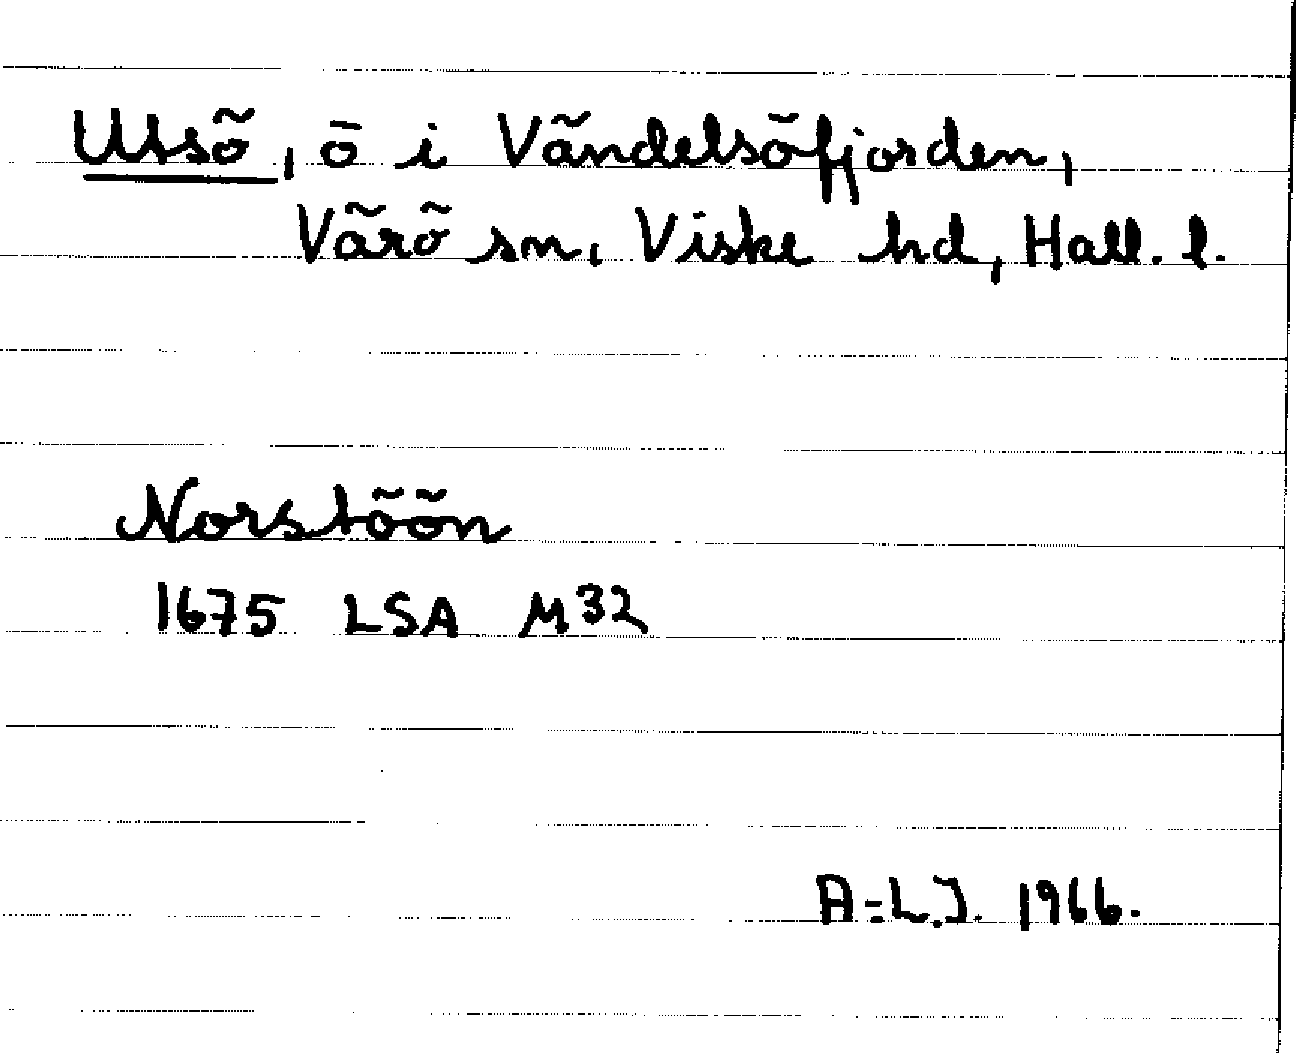 Utsö, ö i Vändelsöfjorden,
Värö sn, Viske hd, Hall. l.
Norstöön
1675 LSA M32
A-L.J. 1966.